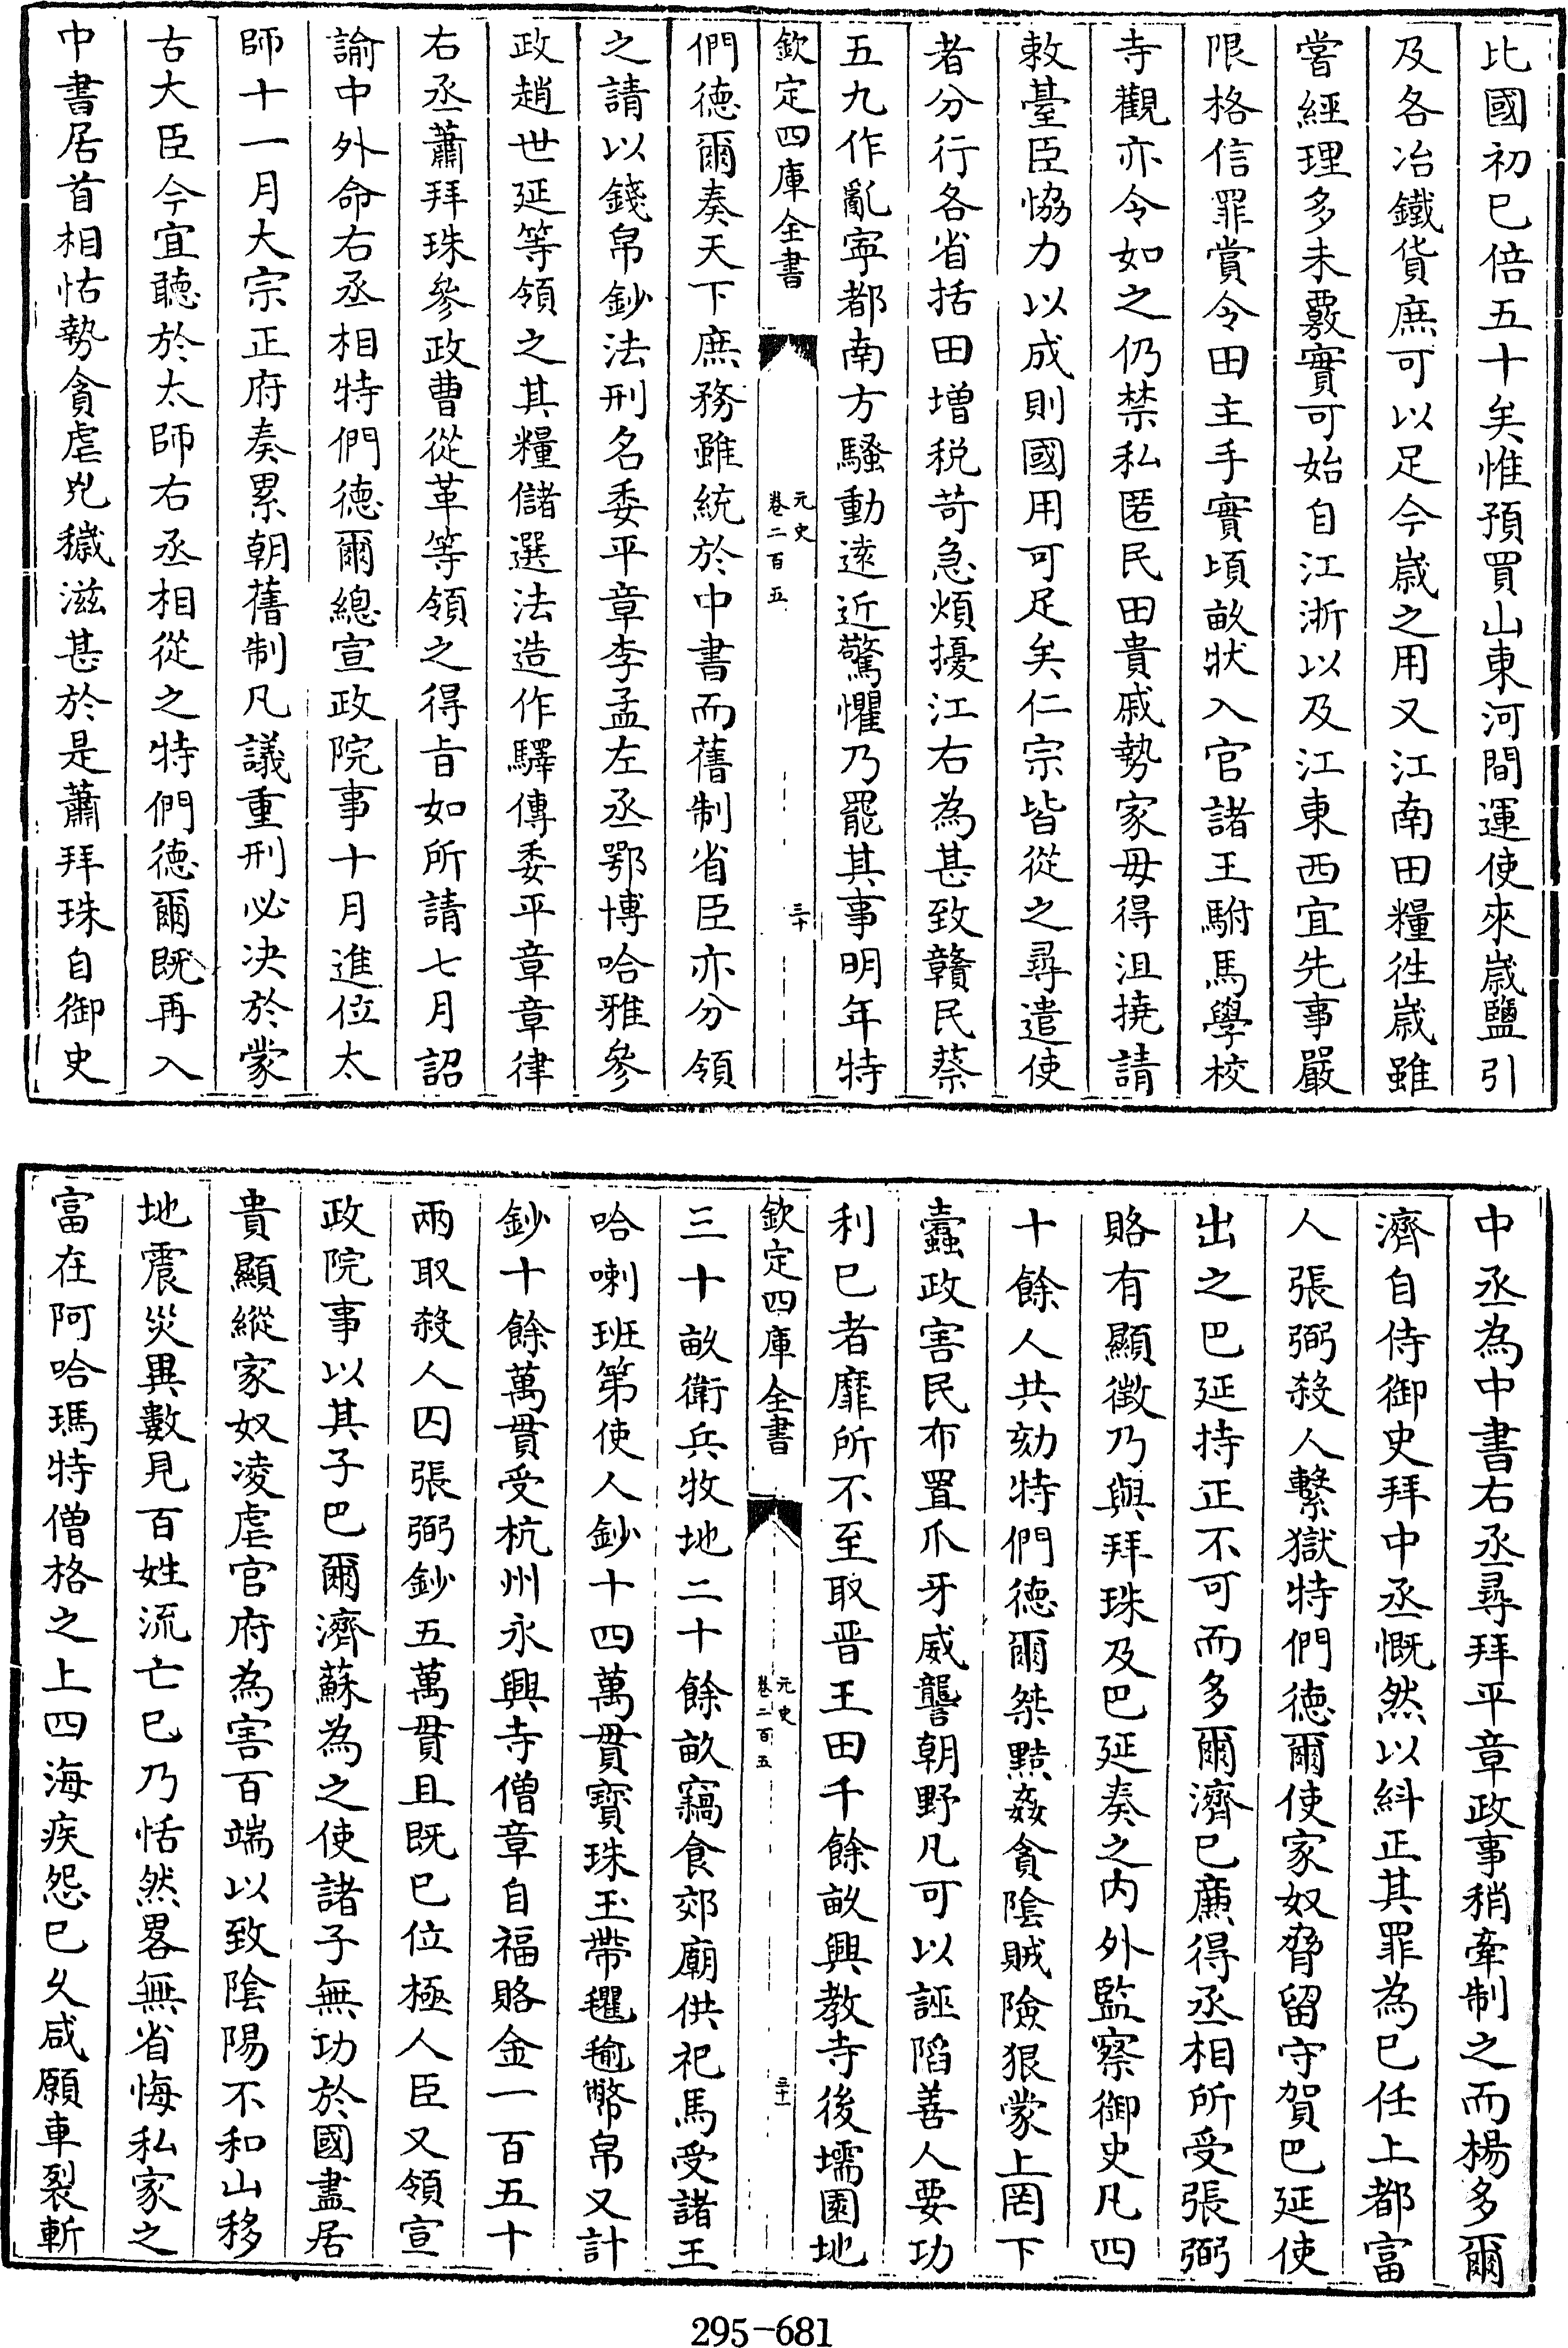 比國初已倍五十矣惟預買山東河間運使來嵗鹽引
及各冶鐵貨庶可以足今嵗之用又江南田糧徃嵗雖
嘗經理多未覈實可始自江浙以及江東西宜先事嚴
限格信罪賞令田主手實頃畝狀入官諸王駙馬學校
寺觀亦令如之仍禁私匿民田貴戚勢家毋得沮撓請
敕臺臣協力以成則國用可足矣仁宗皆從之尋遣使
者分行各省括田增税苛急煩擾江右為甚致贛民蔡
五九作亂寜都南方騷動逺近驚懼乃罷其事明年特
欽定四庫全書
元史
卷二百五
三十
們徳爾奏天下庶務雖統於中書而舊制省臣亦分領
之請以錢帛鈔法刑名委平章李孟左丞鄂博哈雅參
政趙世延等領之其糧儲選法造作驛傳委平章章律
右丞蕭拜珠參政曹從革等領之得旨如所請七月詔
諭中外命右丞相特們徳爾總宣政院事十月進位太
師十一月大宗正府奏累朝舊制凡議重刑必决於蒙
古大臣今宜聽於太師右丞相從之特們徳爾既再入
中書居首相怙勢貪虐兇穢滋甚於是蕭拜珠自御史
中丞為中書右丞尋拜平章政事稍牽制之而楊多爾
濟自侍御史拜中丞慨然以糾正其罪為已任上都富
人張弼殺人繫獄特們徳爾使家奴脅留守賀巴延使
出之巴延持正不可而多爾濟已亷得丞相所受張弼
賂有顯徴乃與拜珠及巴延奏之内外監察御史凡四
十餘人共劾特們徳爾桀黠姦貪隂賊險狠蒙上罔下
蠧政害民布置爪牙威讋朝野凡可以誣陷善人要功
利已者靡所不至取晋王田千餘畝興教寺後壖園地
欽定四庫全書
元史
卷二百五
三十一
三十畝衛兵牧地二十餘畝竊食郊廟供祀馬受諸王
哈喇班第使人鈔十四萬貫寳珠玉帶氍毹幣帛又計
鈔十餘萬貫受杭州永興寺僧章自福賂金一百五十
兩取殺人囚張弼鈔五萬貫且既已位極人臣又領宣
政院事以其子巴爾濟蘇為之使諸子無功於國盡居
貴顯縱家奴凌虐官府為害百端以致隂陽不和山移
地震災異數見百姓流亡已乃恬然畧無省悔私家之
富在阿哈瑪特僧格之上四海疾怨已乆咸願車裂斬
295-681